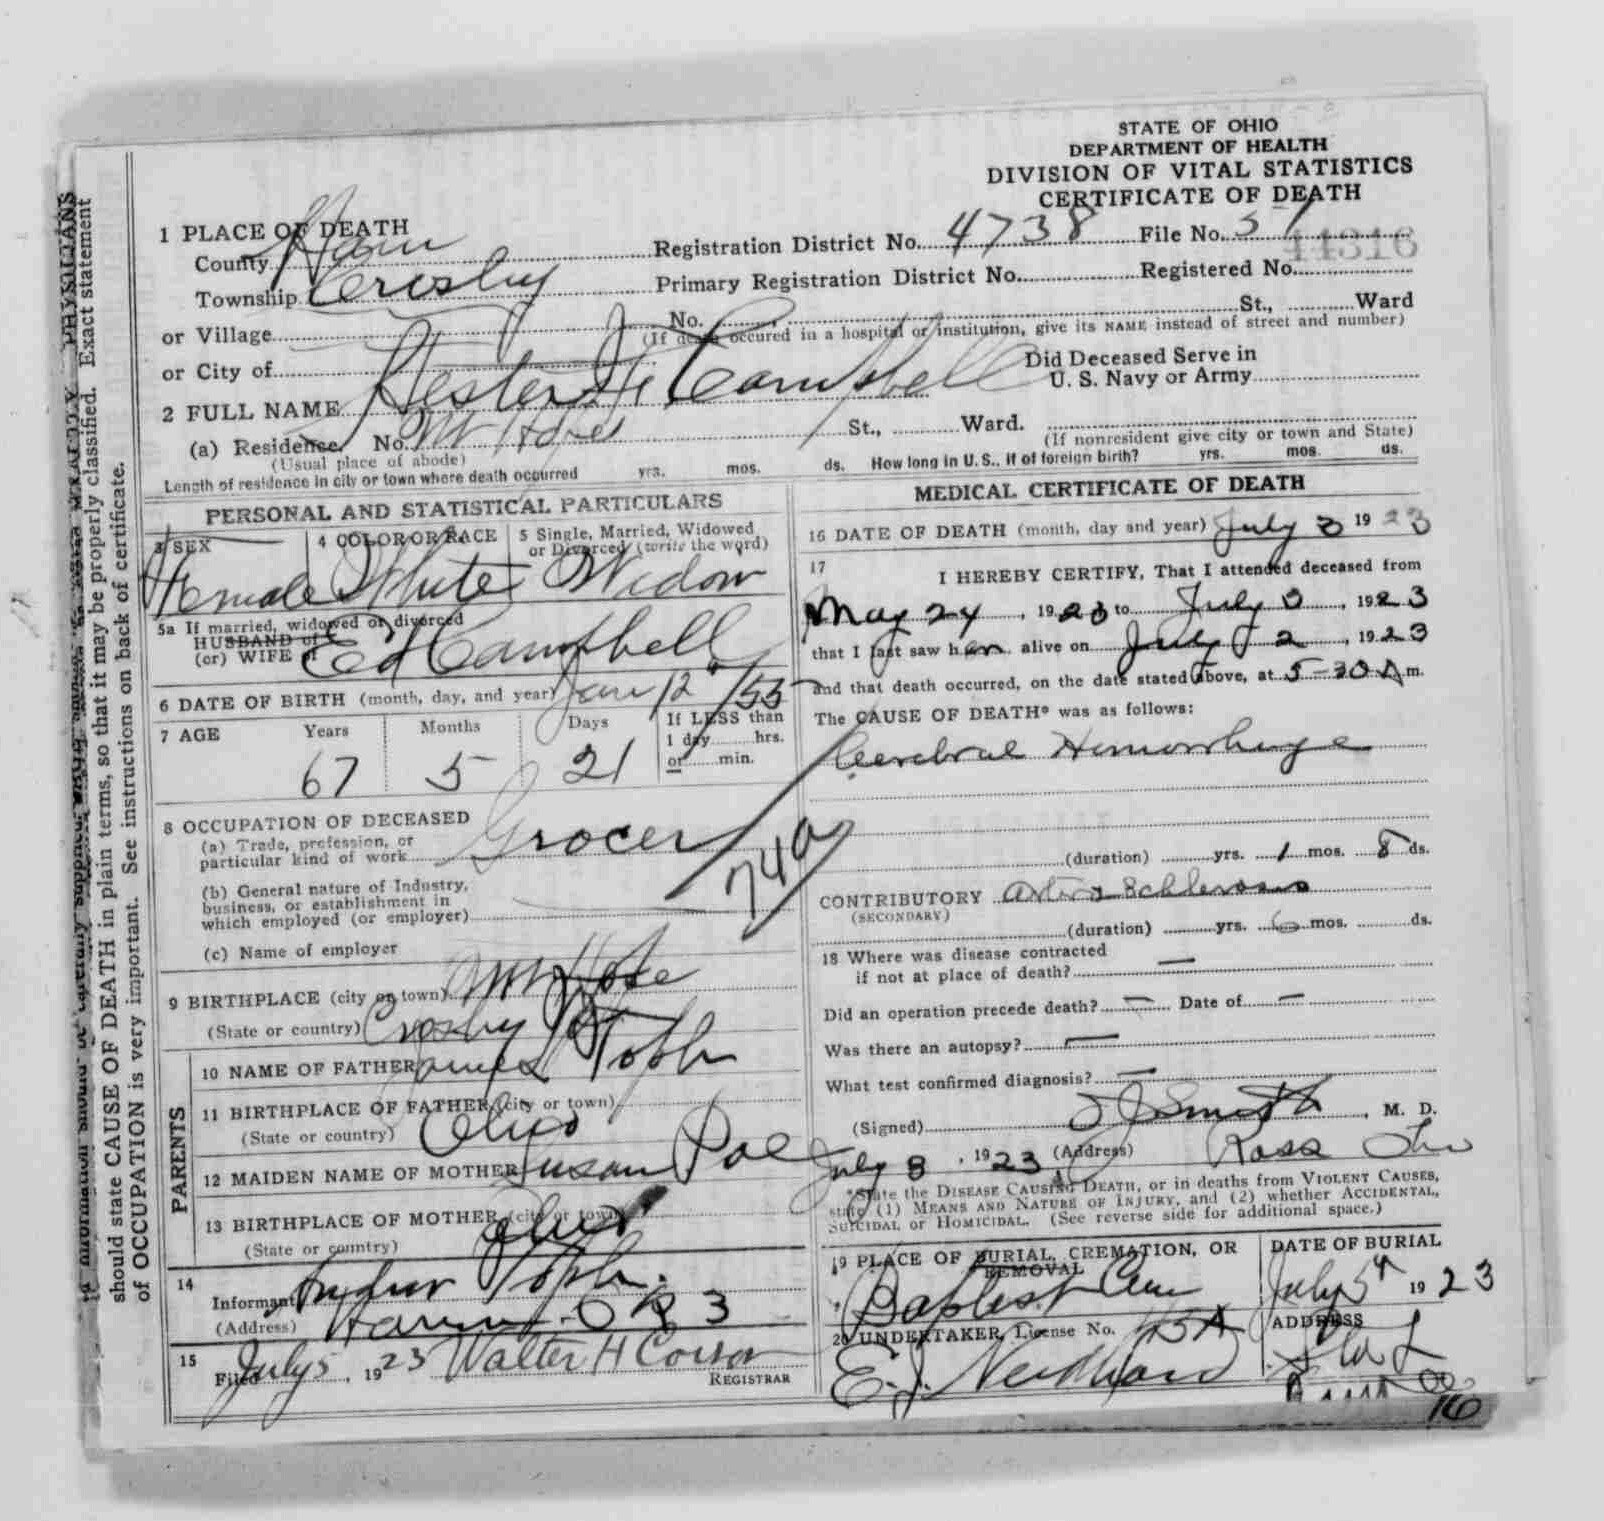 STATE OF OHIO
DEPARTMENT OF HEALTH
DIVISION OF VITAL STATISTICS
CERTIFICATE OF DEATH
1 PLACE OF DEATH
County Ham Registration District No. 4738 File No. 51
44316
Township Crosby Primary Registration District No. Registered No.
or Village No. St., Ward
(If death occured in a hospital or institution, give its NAME instead of street and number)
or City of
Did Deceased Serve in
U. S. Navy or Army
2 FULL NAME Hester Campbell
(a) Residence. No. Mt Hope St., Ward.
(Usual place of abode) (If nonresident give city or town and State)
Length of residence in city or town where death occurred yrs. mos. ds. How long in U. S., if of foreign birth? yrs. mos. ds.
PERSONAL AND STATISTICAL PARTICULARS
3 SEX 4 COLOR OR RACE 5 Single, Married, Widowed
or Divorced (write the word)
Female White Widow
5a If married, widowed or divorced
HUSBAND of
(or) WIFE of Ed Campbell
6 DATE OF BIRTH (month, day, and year) Jan 12
7 AGE Years Months Days If LESS than
1 day hrs.
or min.
67 5 21
8 OCCUPATION OF DECEASED
(a) Trade, profession, or
particular kind of work Grocer
74a
(b) General nature of Industry,
business, or establishment in
which employed (or employer)
(c) Name of employer
9 BIRTHPLACE (city or town) Mt Hope
(State or country) Crosby
PARENTS
10 NAME OF FATHER James
11 BIRTHPLACE OF FATHER (city or town)
(State or country) Ohio
12 MAIDEN NAME OF MOTHER Susan Poe
13 BIRTHPLACE OF MOTHER (city or town)
(State or country) Ohio
14
Informant
(Address) O R 3
15
Filed July 5, 1923 Walter H Corson
REGISTRAR
MEDICAL CERTIFICATE OF DEATH
16 DATE OF DEATH (month, day and year) July 3 1923
17
I HEREBY CERTIFY, That I attended deceased from
May 24, 1923 to July 3, 1923
that I last saw her alive on July 2, 1923
and that death occurred, on the date stated above, at 5-30 A m.
The CAUSE OF DEATH* was as follows:
Cerebral Hemorrhage
(duration) yrs. 1 mos. 8 ds.
CONTRIBUTORY
(SECONDARY)
(duration) yrs. 6 mos. ds.
18 Where was disease contracted
if not at place of death? —
Did an operation precede death? — Date of —
Was there an autopsy? —
What test confirmed diagnosis? —
(Signed) Smith, M. D.
July 8, 1923 (Address) Ross Ohio
*State the DISEASE CAUSING DEATH, or in deaths from VIOLENT CAUSES,
state (1) MEANS AND NATURE OF INJURY, and (2) whether ACCIDENTAL,
SUICIDAL or HOMICIDAL. (See reverse side for additional space.)
19 PLACE OF BURIAL, CREMATION, OR
REMOVAL
DATE OF BURIAL
Baptist Cem July 5 1923
20 UNDERTAKER, License No. 45A
ADDRESS
E. J.
16
PHYSICIANS
should state CAUSE OF DEATH in plain terms, so that it may be properly classified. Exact statement
of OCCUPATION is very important. See instructions on back of certificate.